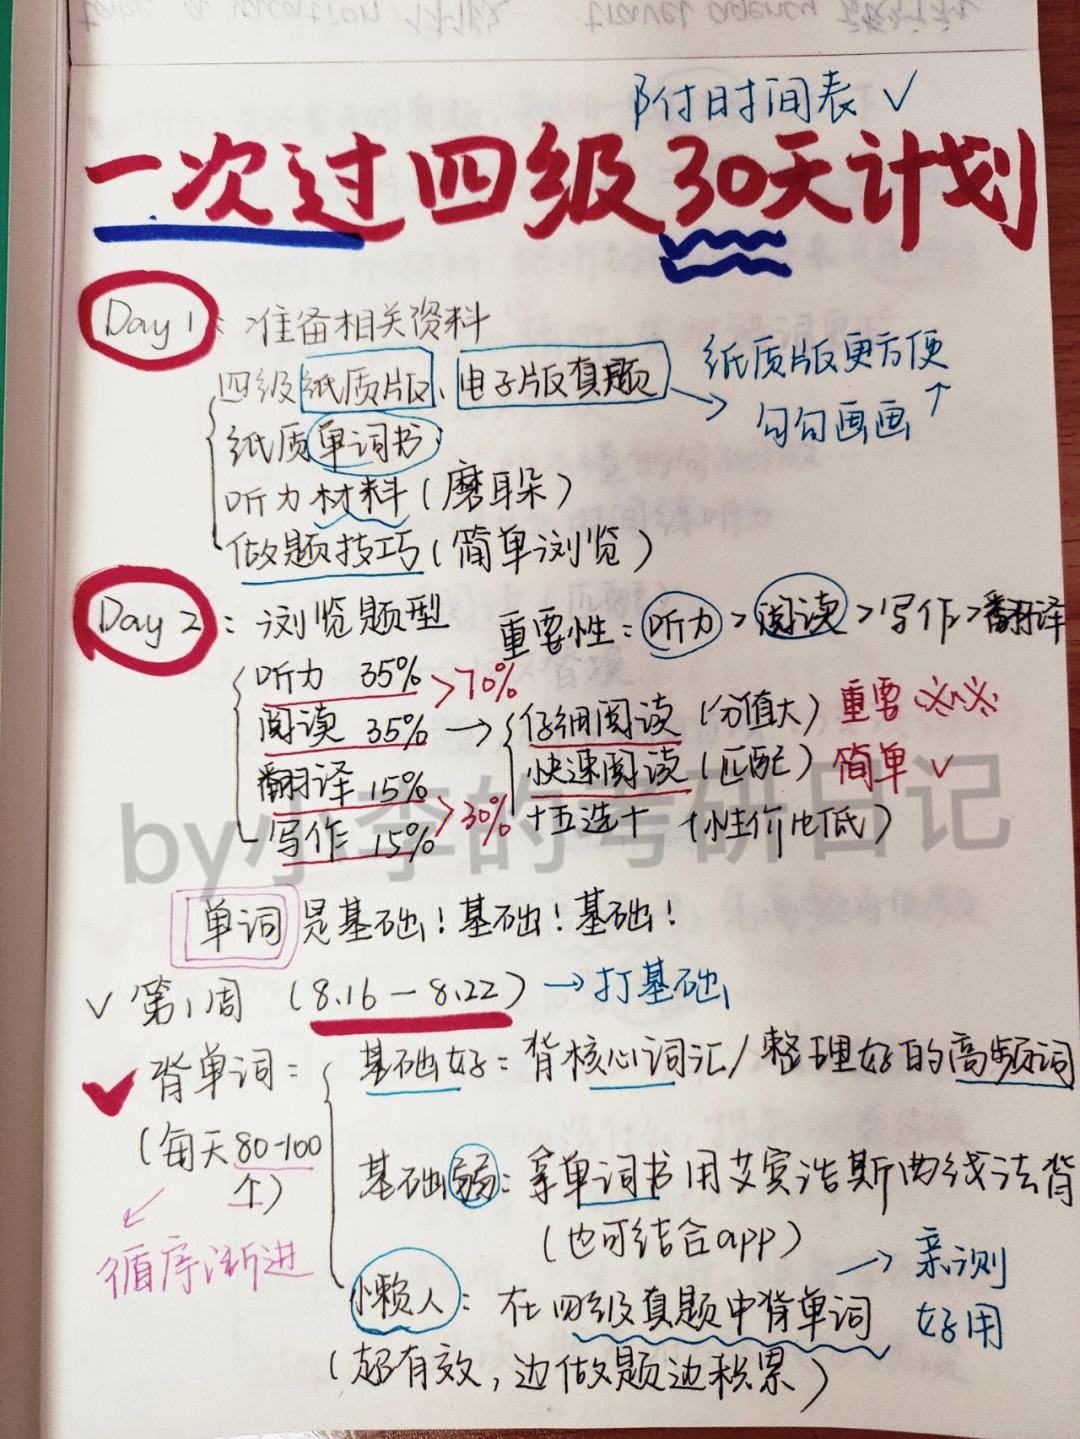 take a vacation 休假 travel agency 旅行社
附时间表 ✓
一次过四级30天计划
Day 1: 准备相关资料
四级纸质版、电子版真题 → 纸质版更方便
勾勾画画 ↑
纸质单词书
听力材料(磨耳朵)
做题技巧(简单浏览)
Day 2: 浏览题型 重要性: 听力>阅读>写作>翻译
听力 35% >70%
阅读 35% → 仔细阅读 (分值大) 重要 ※※
翻译 15% 快速阅读 (匹配) 简单 ✓
写作 15% >30% 十五选十 (性价比低)
by小李的考研日记
单词是基础!基础!基础!
✓ 第1周 (8.16-8.22) → 打基础
✓ 背单词: 基础好: 背核心词汇/整理好的高频词
(每天80-100个)
循序渐进
基础弱: 拿单词书用艾宾浩斯曲线法背
(也可结合app)
懒人: 在四级真题中背单词 → 亲测好用
(超有效,边做题边积累)